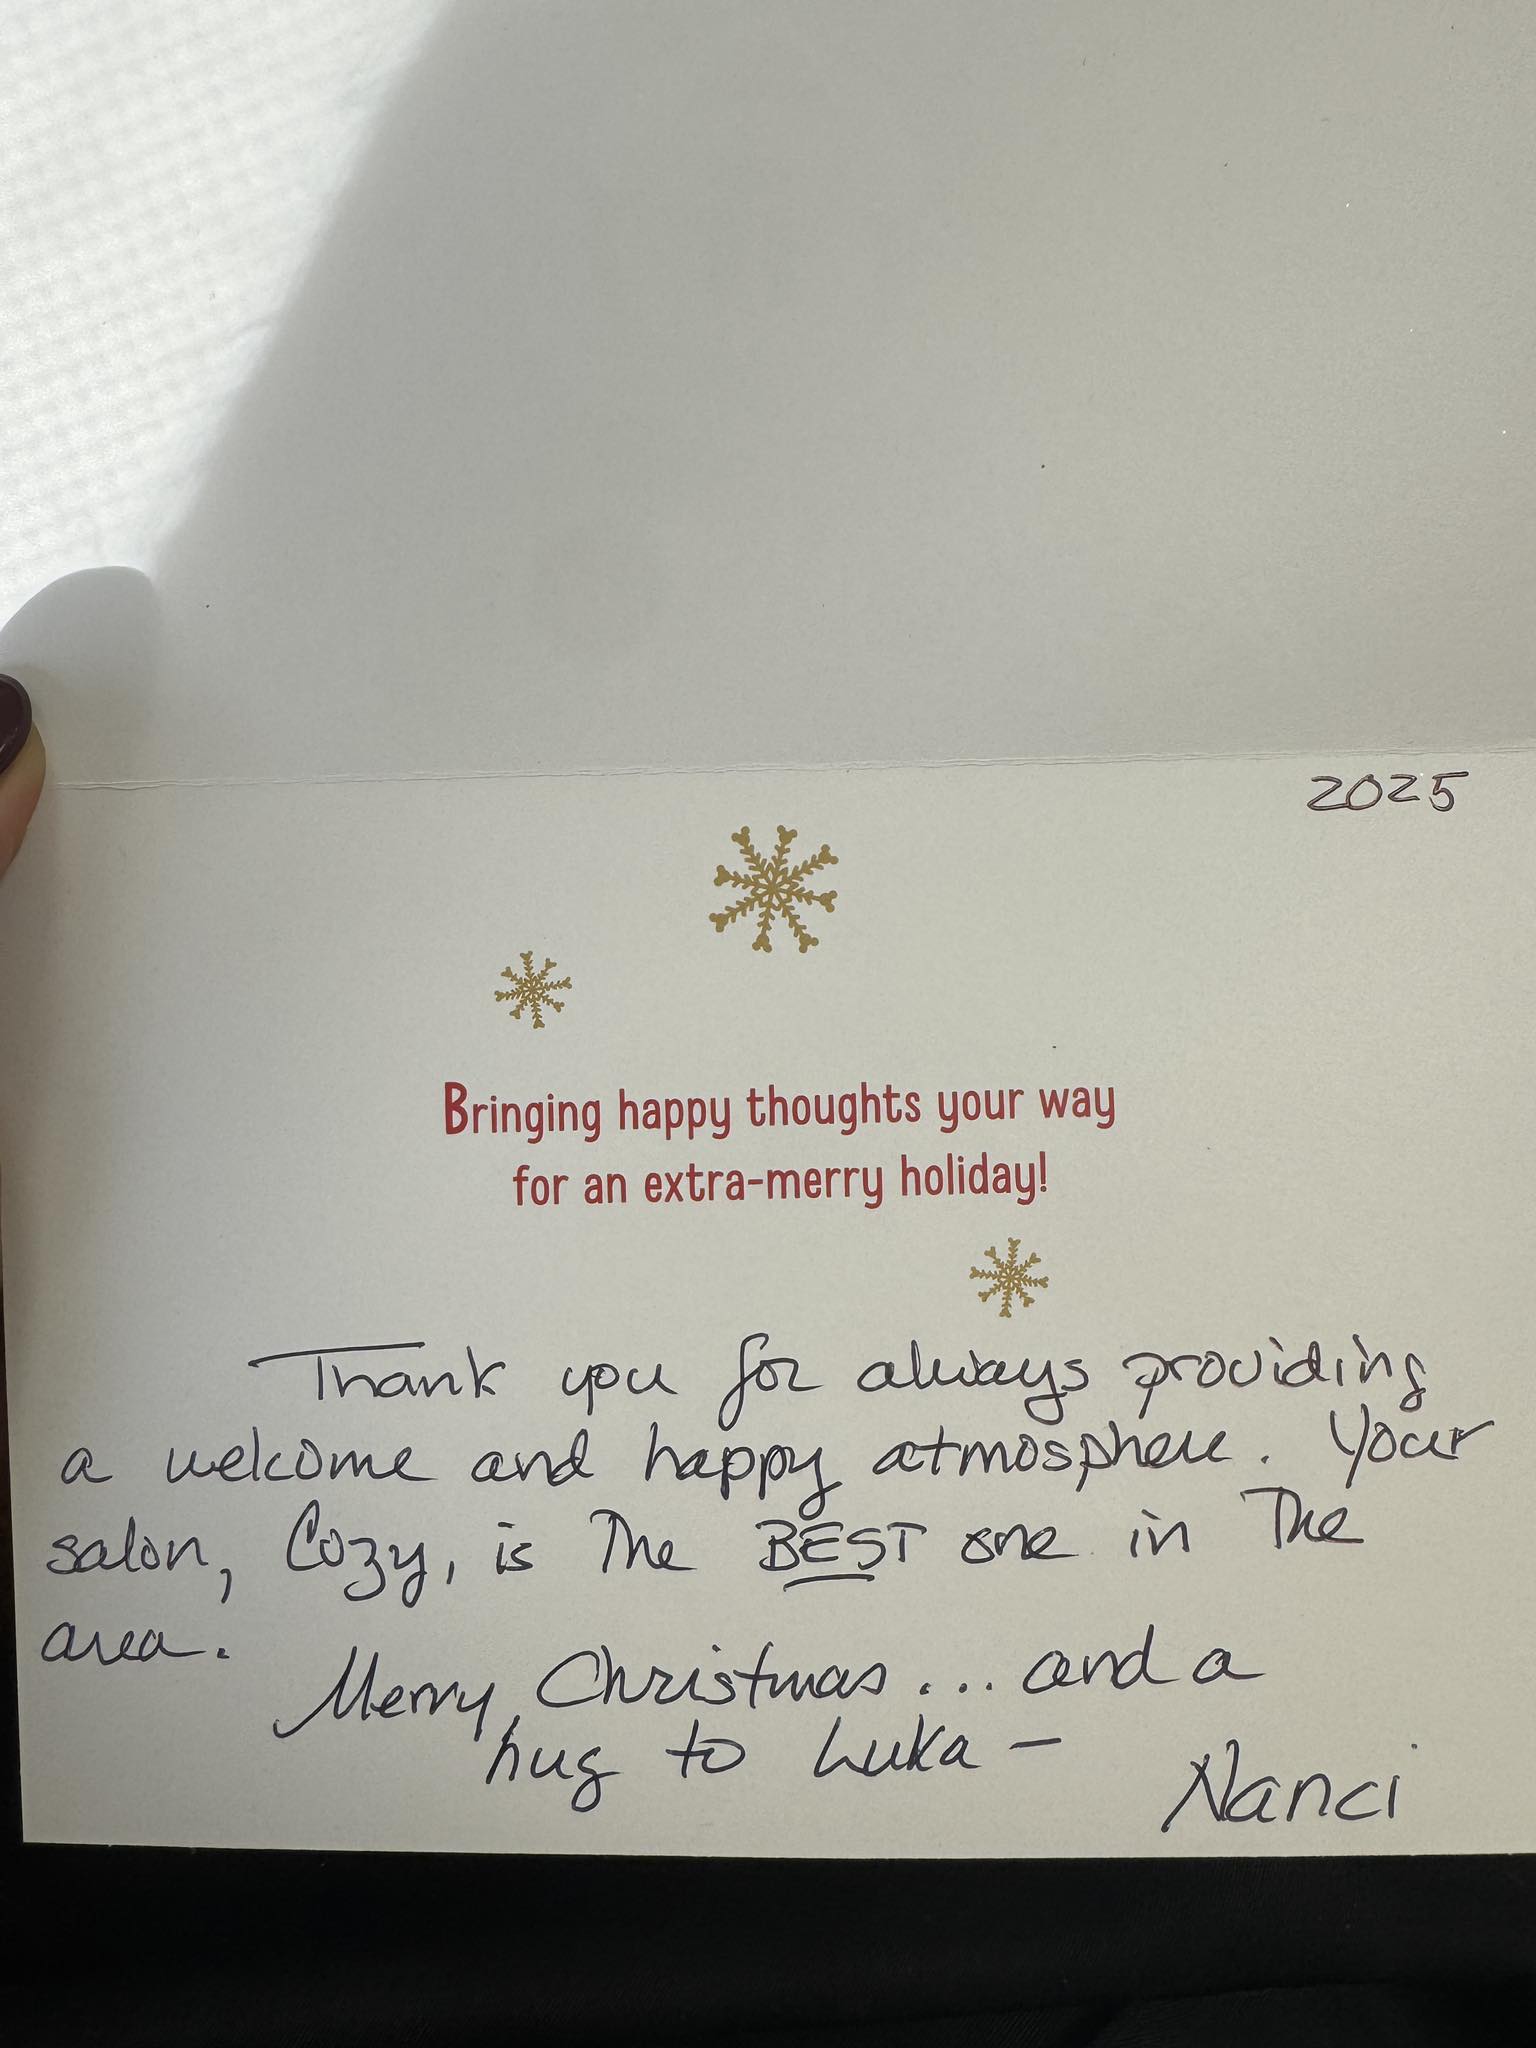 2025
Bringing happy thoughts your way
for an extra-merry holiday!
Thank you for always providing
a welcome and happy atmosphere. Your
salon, Cozy, is The BEST one in The
area.
Merry Christmas... and a
hug to Luka —
Nanci